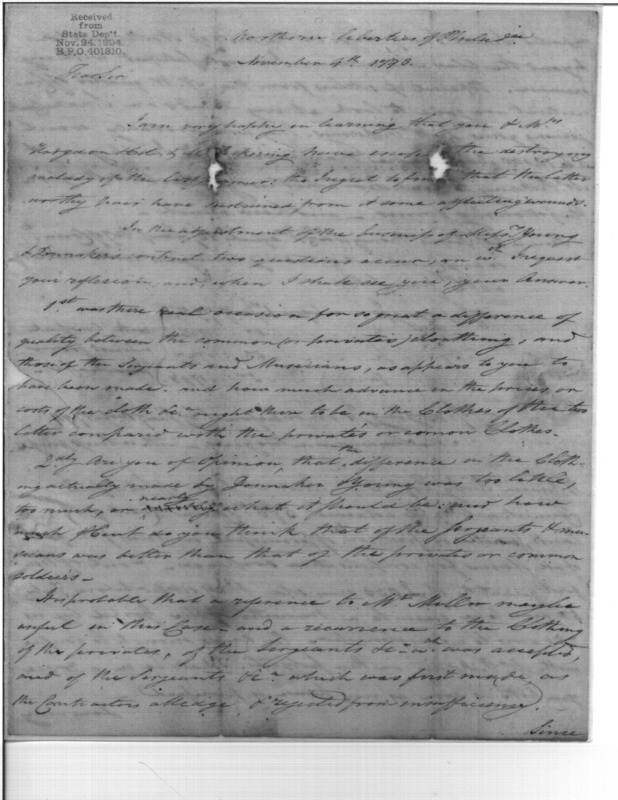 Received
from
State Dep't.
Nov. 24. 1894.
R.P.O. 401810.
Northern Liberties of Philada
November 4th 1793.
Dear Sir
I am very happy in learning that you & Mrs
Hodgdon & have escaped the destroying
malady of the last summer: tho I regret to find that the latter
worthy pair have sustained from it some afflicting wounds.
In the adjustment of the business of Messrs Young
& Dannaker's contract two questions occur, on wch I request
your reflexion, and, when I shall see you, your Answer.
1st was there real occasion for so great a difference of
quality between the common (or privates) cloathing, and
those of the Sergeants and Musicians, as appears to you to
have been made. and how much advance in the prices or
costs of the cloth &c ought there to be in the Clothes of the two
latter compared with the private's or common Clothes.
2dly Are you of Opinion, that the difference in the Cloth-
ing actually made by Dannaker & Young was too little,
too much, or nearly what it should be: and how
much Cent do you think that of the Sergeants & mu-
sicians was better than that of the privates or common
soldiers—
It is probable that a reference to Mr Miller may be
useful in this Case— and a recurrence to the Clothing
of the privates, of the Sergeants &c wch was accepted,
and of the Sergeants &c which was first made, as
the Contractors alledge, & rejected from insufficiency.
Since